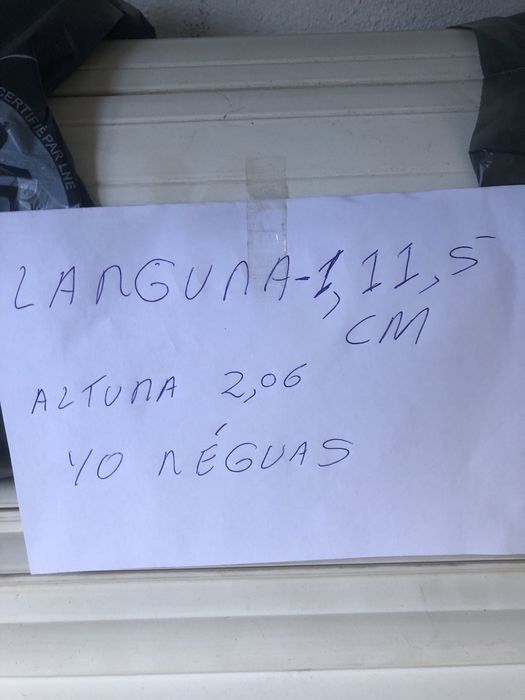 CERTIFIÉ PAR LNE
LARGURA-1,11,5
CM
ALTURA 2,06
40 RÉGUAS